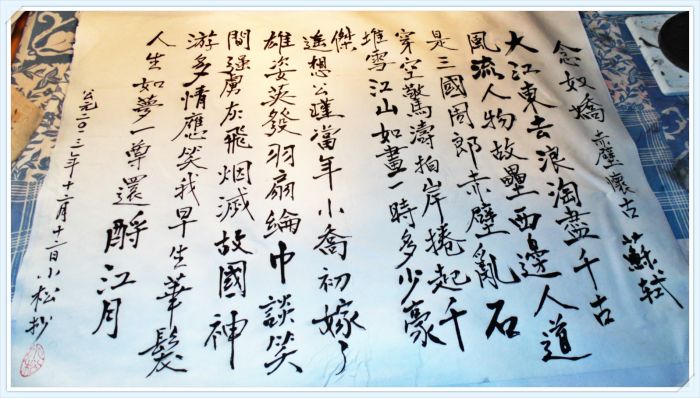 念奴嬌 赤壁懷古 蘇軾
大江東去浪淘盡千古
風流人物故壘西邊人道
是三國周郎赤壁亂石
穿空驚濤拍岸捲起千
堆雪江山如畫一時多少豪
傑
遙想公瑾當年小喬初嫁了
雄姿英發羽扇綸巾談笑
間強虜灰飛烟滅故國神
游多情應笑我早生華髮
人生如夢一尊還酹江月
公元二〇一三年十二月十二日小松抄